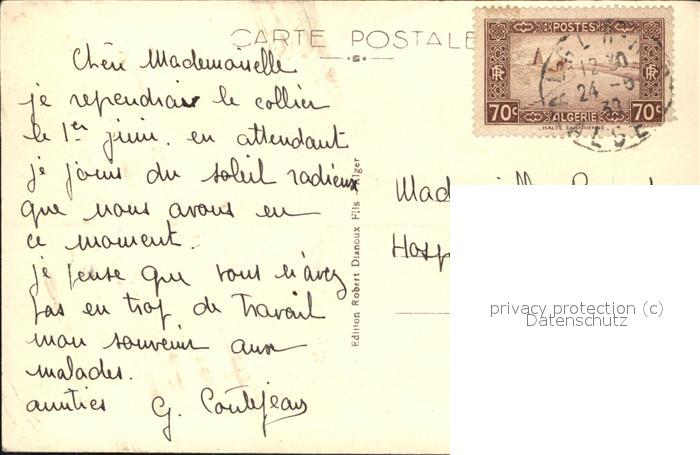 CARTE POSTALE
POSTES
RF RF
12 30
24 -5
70c ALGERIE 70c
HALTE SAHARIENNE
Chère Mademoiselle
je reprendrai le collier
le 1er juin. en attendant
je jouis du soleil radieux
que nous avons en
ce moment.
je pense que vous n'avez
pas en trop de travail
mon souvenir aux
malades.
amitiés G. Coutejean
Edition Robert Dianoux Fils Alger
Mad
Hosp
privacy protection (c)
Datenschutz